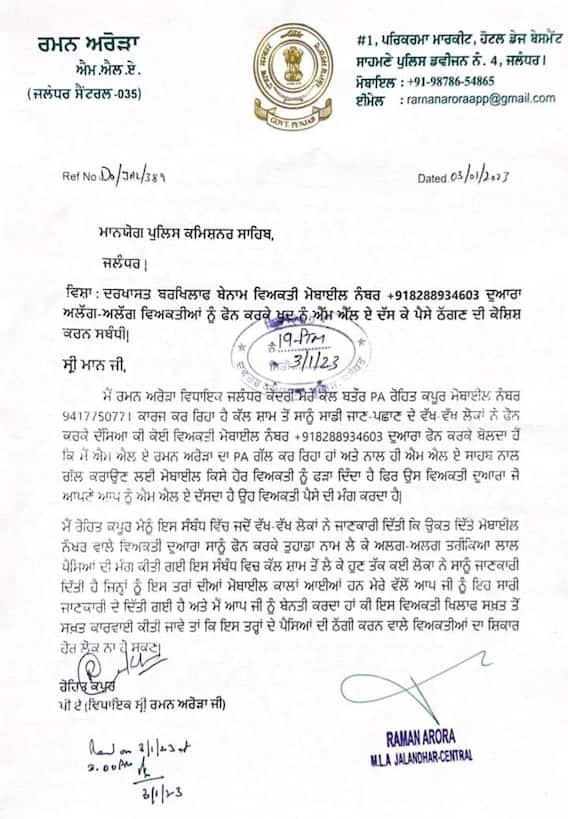 ਰਮਨ ਅਰੋੜਾ
ਐਮ.ਐਲ.ਏ.
(ਜਲੰਧਰ ਸੈਂਟਰਲ -035)
GOVT. PUNJAB
#1, ਪਰਿਕਰਮਾ ਮਾਰਕੀਟ, ਹੋਟਲ ਡੇਜ ਬੇਸਮੈਂਟ
ਸਾਹਮਣੇ ਪੁਲਿਸ ਡਵੀਜਨ ਨੰ. 4, ਜਲੰਧਰ।
ਮੋਬਾਇਲ : +91-98786-54865
ਈਮੇਲ : ramanaroraapp@gmail.com
Ref No. Do/JAL/389
Dated 03/01/2023
ਮਾਨਯੋਗ ਪੁਲਿਸ ਕਮਿਸ਼ਨਰ ਸਾਹਿਬ,
ਜਲੰਧਰ|
ਵਿਸ਼ਾ : ਦਰਖਾਸਤ ਬਰਖਿਲਾਫ ਬੇਨਾਮ ਵਿਅਕਤੀ ਮੋਬਾਈਲ ਨੰਬਰ +918288934603 ਦੁਆਰਾ
ਅਲੱਗ-ਅਲੱਗ ਵਿਅਕਤੀਆਂ ਨੂੰ ਫੋਨ ਕਰਕੇ ਖੁਦ ਨੂੰ ਐੱਮ ਐੱਲ ਏ ਦੱਸ ਕੇ ਪੈਸੇ ਠੱਗਣ ਦੀ ਕੋਸ਼ਿਸ਼
ਕਰਨ ਸਬੰਧੀ|
ਨੰ: 19-PM
ਮਿਤੀ 3/1/23
ਸ੍ਰੀ ਮਾਨ ਜੀ,
ਮੈਂ ਰਮਨ ਅਰੋੜਾ ਵਿਧਾਇਕ ਜਲੰਧਰ ਕੇਂਦਰੀ ਮੇਰੇ ਕੋਲ ਬਤੌਰ PA ਰੋਹਿਤ ਕਪੂਰ ਮੋਬਾਈਲ ਨੰਬਰ
9417750771 ਕਾਰਜ ਕਰ ਰਿਹਾ ਹੈ ਕੱਲ ਸ਼ਾਮ ਤੋਂ ਸਾਨੂੰ ਸਾਡੀ ਜਾਣ-ਪਛਾਣ ਦੇ ਵੱਖ-ਵੱਖ ਲੋਕਾਂ ਨੇ ਫੋਨ
ਕਰਕੇ ਦੱਸਿਆ ਕੀ ਕੋਈ ਵਿਅਕਤੀ ਮੋਬਾਈਲ ਨੰਬਰ +918288934603 ਦੁਆਰਾ ਫੋਨ ਕਰਕੇ ਬੋਲਦਾ ਹੈ
ਕਿ ਮੈਂ ਐਮ ਐਲ ਏ ਰਮਨ ਅਰੋੜਾ ਦਾ PA ਗੱਲ ਕਰ ਰਿਹਾ ਹਾਂ ਅਤੇ ਨਾਲ ਹੀ ਐਮ ਐਲ ਏ ਸਾਹਬ ਨਾਲ
ਗੱਲ ਕਰਾਉਣ ਲਈ ਮੋਬਾਈਲ ਕਿਸੇ ਹੋਰ ਵਿਅਕਤੀ ਨੂੰ ਫੜਾ ਦਿੰਦਾ ਹੈ ਫਿਰ ਉਸ ਵਿਅਕਤੀ ਦੁਆਰਾ ਜੋ
ਆਪਣੇ ਆਪ ਨੂੰ ਐਮ ਐਲ ਏ ਦੱਸਦਾ ਹੈ ਉਹ ਵਿਅਕਤੀ ਪੈਸੇ ਦੀ ਮੰਗ ਕਰਦਾ ਹੈ|
ਮੈਂ ਰੋਹਿਤ ਕਪੂਰ ਮੈਨੂੰ ਇਸ ਸੰਬੰਧ ਵਿੱਚ ਜਦੋਂ ਵੱਖ-ਵੱਖ ਲੋਕਾਂ ਨੇ ਜਾਣਕਾਰੀ ਦਿੱਤੀ ਕਿ ਉਕਤ ਦਿੱਤੇ ਮੋਬਾਈਲ
ਨੰਬਰ ਵਾਲੇ ਵਿਅਕਤੀ ਦੁਆਰਾ ਸਾਨੂੰ ਫੋਨ ਕਰਕੇ ਤੁਹਾਡਾ ਨਾਮ ਲੈ ਕੇ ਅਲਗ-ਅਲਗ ਤਰੀਕਿਆ ਲਾਲ
ਪੈਸਿਆਂ ਦੀ ਮੰਗ ਕੀਤੀ ਗਈ ਇਸ ਸੰਬੰਧ ਵਿਚ ਕੱਲ ਸ਼ਾਮ ਤੋਂ ਲੈ ਕੇ ਹੁਣ ਤੱਕ ਕਈ ਲੋਕਾਂ ਨੇ ਸਾਨੂੰ ਜਾਣਕਾਰੀ
ਦਿੱਤੀ ਹੈ ਜਿਨ੍ਹਾਂ ਨੂੰ ਇਸ ਤਰਾਂ ਦੀਆਂ ਮੋਬਾਈਲ ਕਾਲਾਂ ਆਈਆਂ ਹਨ ਮੇਰੇ ਵੱਲੋਂ ਆਪ ਜੀ ਨੂੰ ਇਹ ਸਾਰੀ
ਜਾਣਕਾਰੀ ਦੇ ਦਿੱਤੀ ਗਈ ਹੈ ਅਤੇ ਮੈਂ ਆਪ ਜੀ ਨੂੰ ਬੇਨਤੀ ਕਰਦਾ ਹਾਂ ਕੀ ਇਸ ਵਿਅਕਤੀ ਖਿਲਾਫ ਸਖ਼ਤ ਤੋਂ
ਸਖ਼ਤ ਕਾਰਵਾਈ ਕੀਤੀ ਜਾਵੇ ਤਾਂ ਕਿ ਇਸ ਤਰ੍ਹਾਂ ਦੇ ਪੈਸਿਆਂ ਦੀ ਠੱਗੀ ਕਰਨ ਵਾਲੇ ਵਿਅਕਤੀਆਂ ਦਾ ਸ਼ਿਕਾਰ
ਹੋਰ ਲੋਕ ਨਾ ਹੋ ਸਕਣ|
ਰੋਹਿਤ ਕਪੂਰ
ਪੀ ਏ (ਵਿਧਾਇਕ ਸ੍ਰੀ ਰਮਨ ਅਰੋੜਾ ਜੀ)
RAMAN ARORA
M.L.A JALANDHAR-CENTRAL
on 3/1/23 at
2.00PM
3/1/23